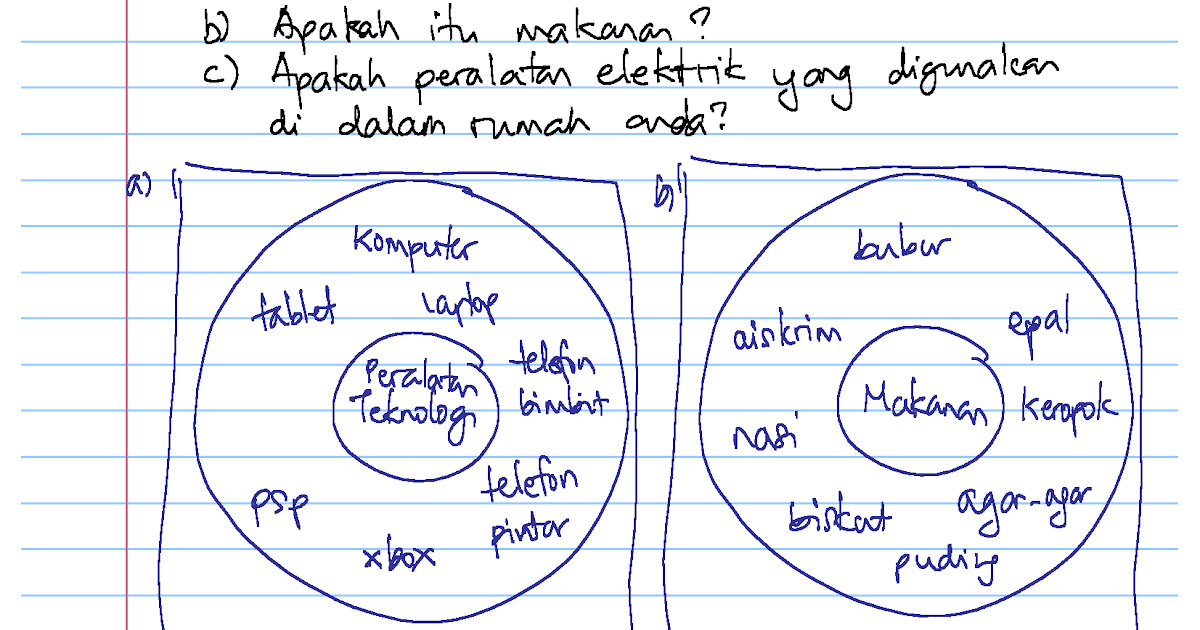 b) Apakah itu makanan?
c) Apakah peralatan elektrik yang digunakan
di dalam rumah anda?
a)
Komputer
tablet
Laptop
telefon
bimbit
Peralatan
Teknologi
telefon
pintar
psp
xbox
b)
bubur
aiskrim
epal
Makanan
keropok
nasi
biskut
agar-agar
puding